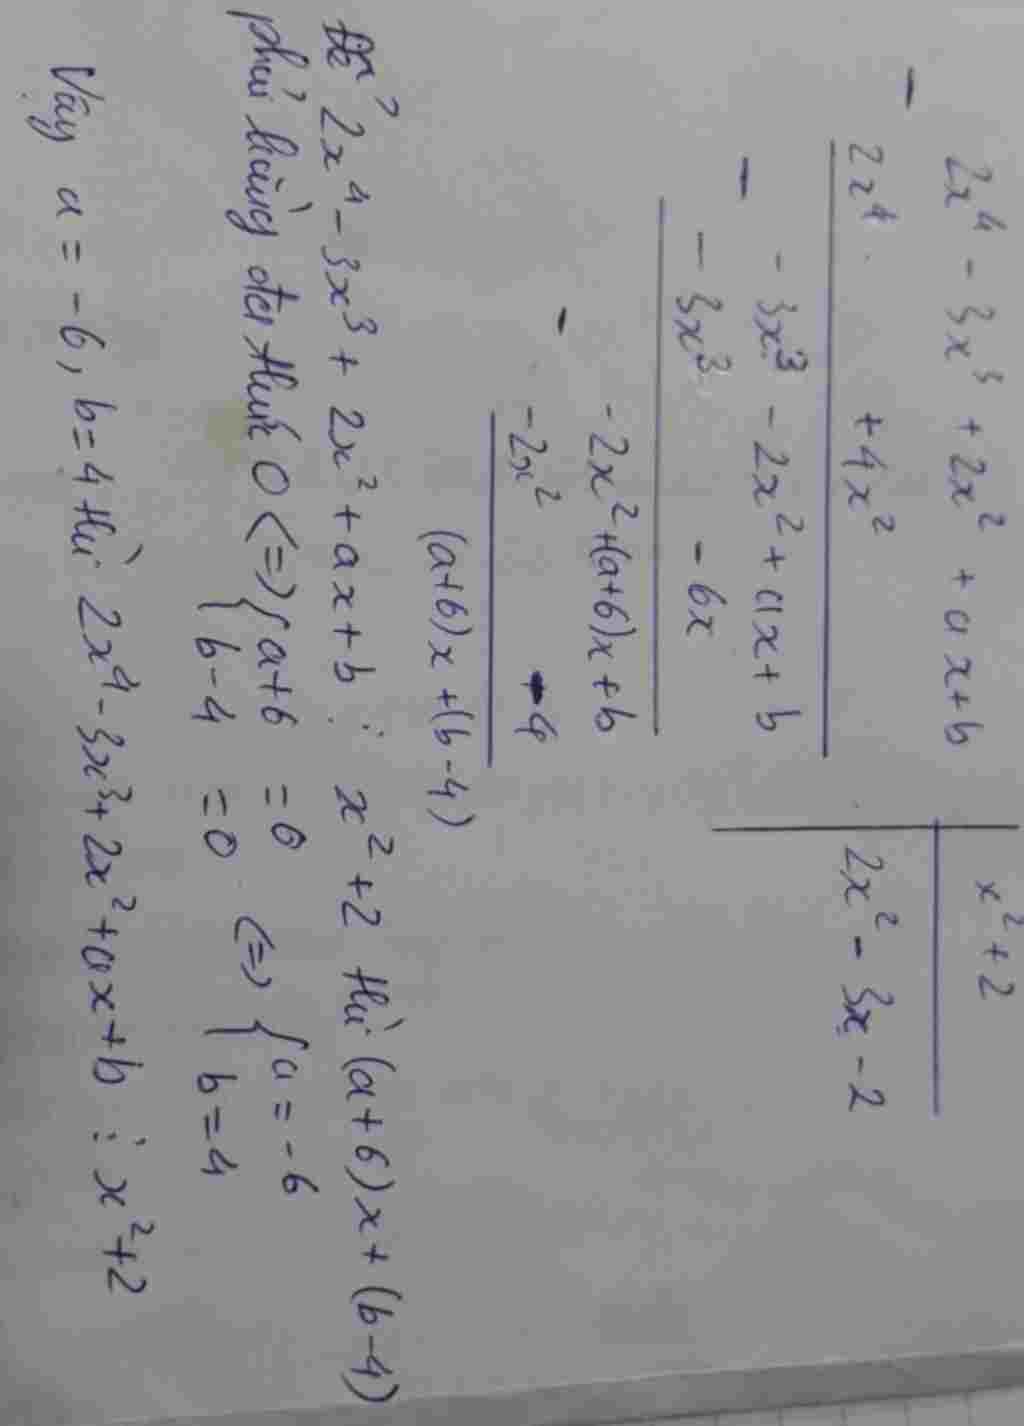 2x⁴ - 3x³ + 2x² + ax + b | x² + 2
- 2x⁴ + 4x² | 2x² - 3x - 2
- 3x³ - 2x² + ax + b
- - 3x³ - 6x
- 2x² + (a+6)x + b
- - 2x² - 4
(a+6)x + (b-4)
Để 2x⁴ - 3x³ + 2x² + ax + b ⋮ x² + 2 thì (a+6)x + (b-4)
phải bằng đa thức 0 <=> { a+6 = 0 <=> { a = -6
b-4 = 0 b = 4
Vậy a = -6, b = 4 thì 2x⁴ - 3x³ + 2x² + ax + b ⋮ x² + 2